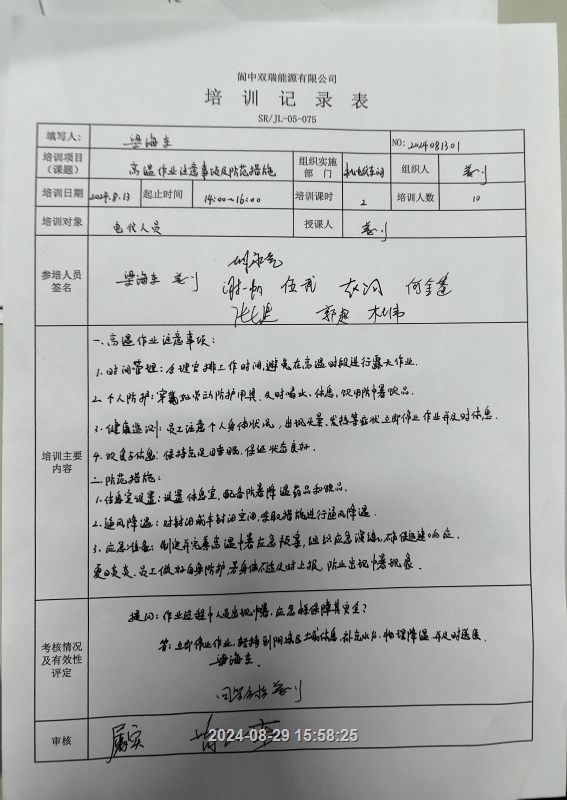 阆中双瑞能源有限公司
培训记录表
SR/JL-05-075
填写人: 梁海东 NO: 2024081301
培训项目(课题) 高温作业注意事项及防范措施 组织实施部门 组织人
培训日期 2024.8.13 起止时间 14:00~16:00 培训课时 2 培训人数 10
培训对象 电仪人员 授课人
参培人员签名
梁海东
伍武 何金蓬
郭超
培训主要内容
一.高温作业注意事项:
1.时间管理:合理安排工作时间,避免在高温时段进行露天作业.
2.个人防护:穿戴好劳动防护用具,及时喝水、休息,饮用防中暑饮品.
3.健康监测:员工注意个人身体状况,出现头晕、发热等症状立即停止作业并及时休息.
4.饮食与休息:保持充足睡眠,保证状态良好.
二.防范措施:
1.休息室设置:设置休息室,配备防暑降温药品和饮品.
2.通风降温:对封闭或半封闭空间,采取措施进行通风降温.
3.应急准备:制定并完善高温中暑应急预案,组织应急演练,确保迅速响应.
夏日炎炎,员工做好自身防护,若身体不适及时上报,防止出现中暑现象.
考核情况及有效性评定
提问:作业过程中人员出现中暑,应怎样保障其安全?
答:立即停止作业,转移到阴凉区域休息,补充水分,物理降温并及时送医.
梁海东.
回答合格
审核 属实
2024-08-29 15:58:25